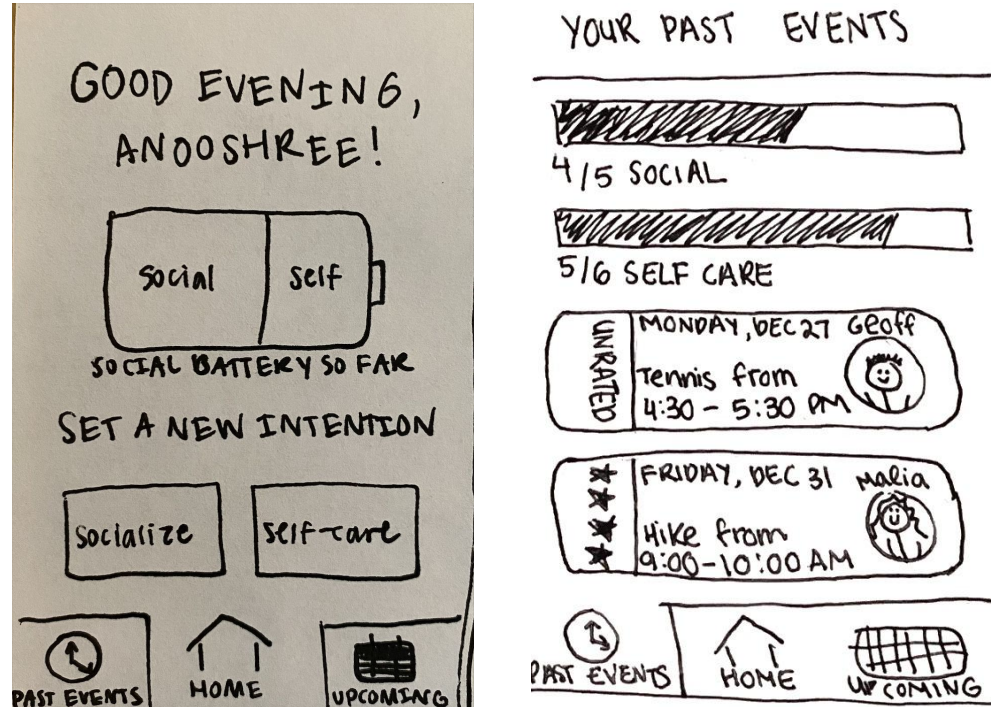 GOOD EVENING,
ANOOSHREE!
social
self
SOCIAL BATTERY SO FAR
SET A NEW INTENTION
socialize
self-care
PAST EVENTS
HOME
UPCOMING
YOUR PAST EVENTS
4/5 SOCIAL
5/6 SELF CARE
UNRATED
MONDAY, DEC 27 Geoff
Tennis from
4:30 - 5:30 PM
FRIDAY, DEC 31 Malia
Hike from
9:00-10:00 AM
PAST EVENTS
HOME
UPCOMING